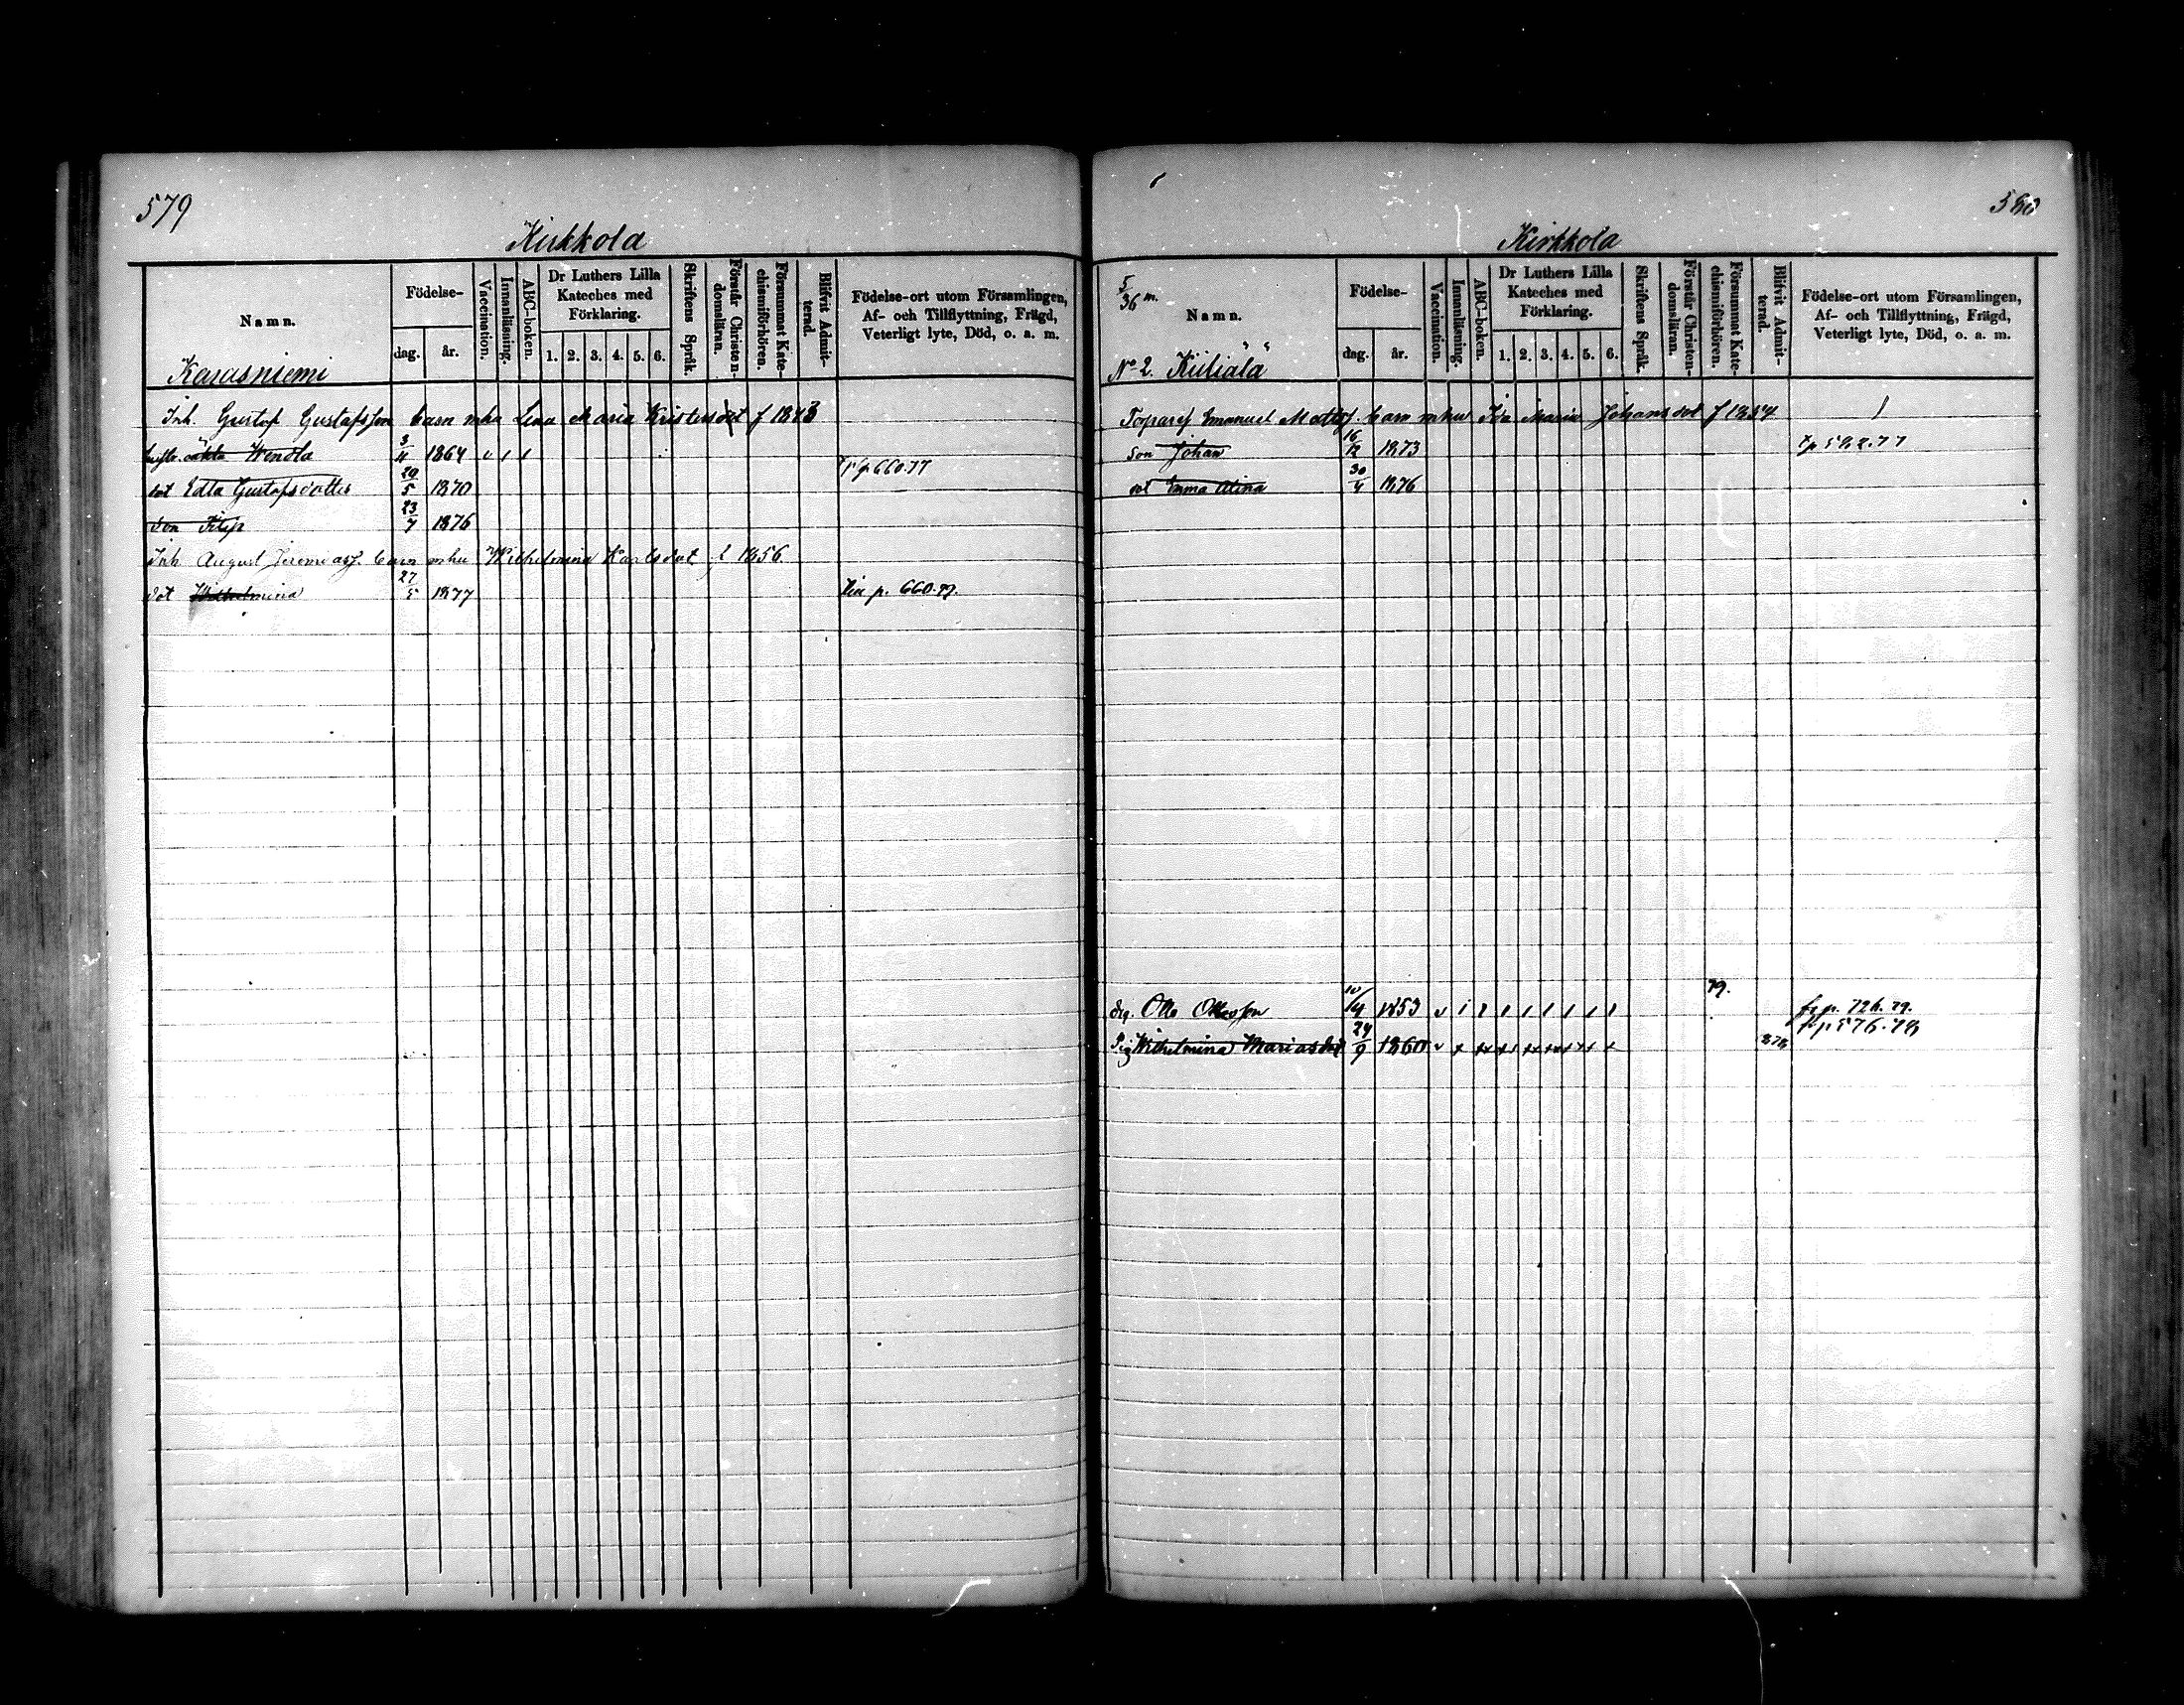 579
Kirkkola
Namn.
Födelse-
dag.
år.
Vaccination.
Innanläsning.
ABC-boken.
Dr Luthers Lilla
Kateches med
Förklaring.
1. 2. 3. 4. 5. 6.
Skriftens Språk.
Förstår Christen-
domsläran.
Försummat Kate-
chismiförhören.
Blifvit Admit-
terad.
Födelse-ort utom Församlingen,
Af- och Tillflyttning, Frägd,
Veterligt lyte, Död, o. a. m.
Karusniemi
Inh. Gustaf Gustafsson barn m hu Lena Maria Kristersdot f 1843
äkta Wendla 3/11 1864
dot Edla Gustafsdotter 20/5 1870 p 660.77
son Filip 23/7 1876
Inh August Jeremiasf. barn m hu Wilhelmina Karlsdot f 1856
dot Wilhelmina 27/5 1877 p. 660.79.
580
Kirkkola
5/36 m.
Namn.
Födelse-
dag.
år.
Vaccination.
Innanläsning.
ABC-boken.
Dr Luthers Lilla
Kateches med
Förklaring.
1. 2. 3. 4. 5. 6.
Skriftens Språk.
Förstår Christen-
domsläran.
Försummat Kate-
chismiförhören.
Blifvit Admit-
terad.
Födelse-ort utom Församlingen,
Af- och Tillflyttning, Frägd,
Veterligt lyte, Död, o. a. m.
No 2. Kiiliälä
Emanuel Mattsf. barn m hu Ida Maria Johansdot f 1854
son Johan 16/12 1873 t p 582.77
dot Emma Alina 30/4 1876
79.
drg. Otto Ottosson 10/4 1853 fr p. 726.79.
Pig Wilhelmina Mariasdot 24/9 1860 p 576.79